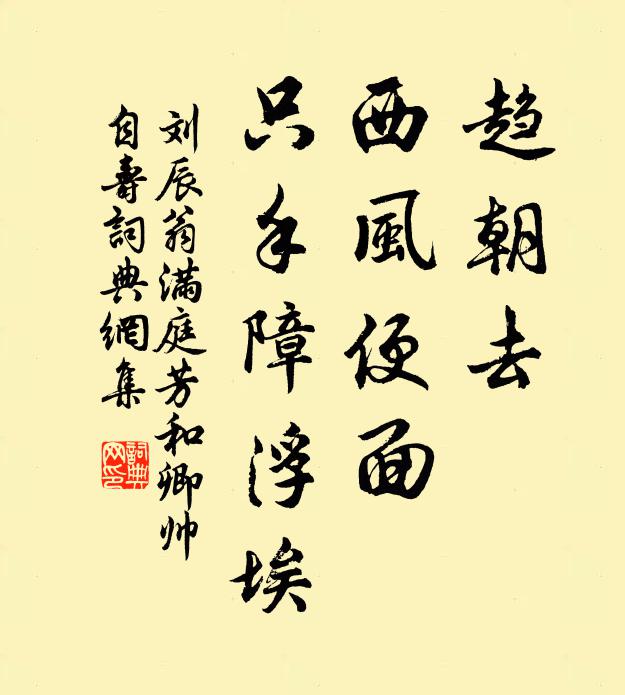 趋朝去
西風便面
只手障浮埃
刘辰翁满庭芳和卿帅
自寿詞典網集
詞典
网印